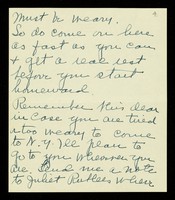 Must be weary.
So do come on here
as fast as you can
& get a real rest
before you start
homeward.
Remember this dear
in case you are tired
& too weary to come
to N.Y. I'll plan to
go to you wherever you
are. Send me a note
to Juliet